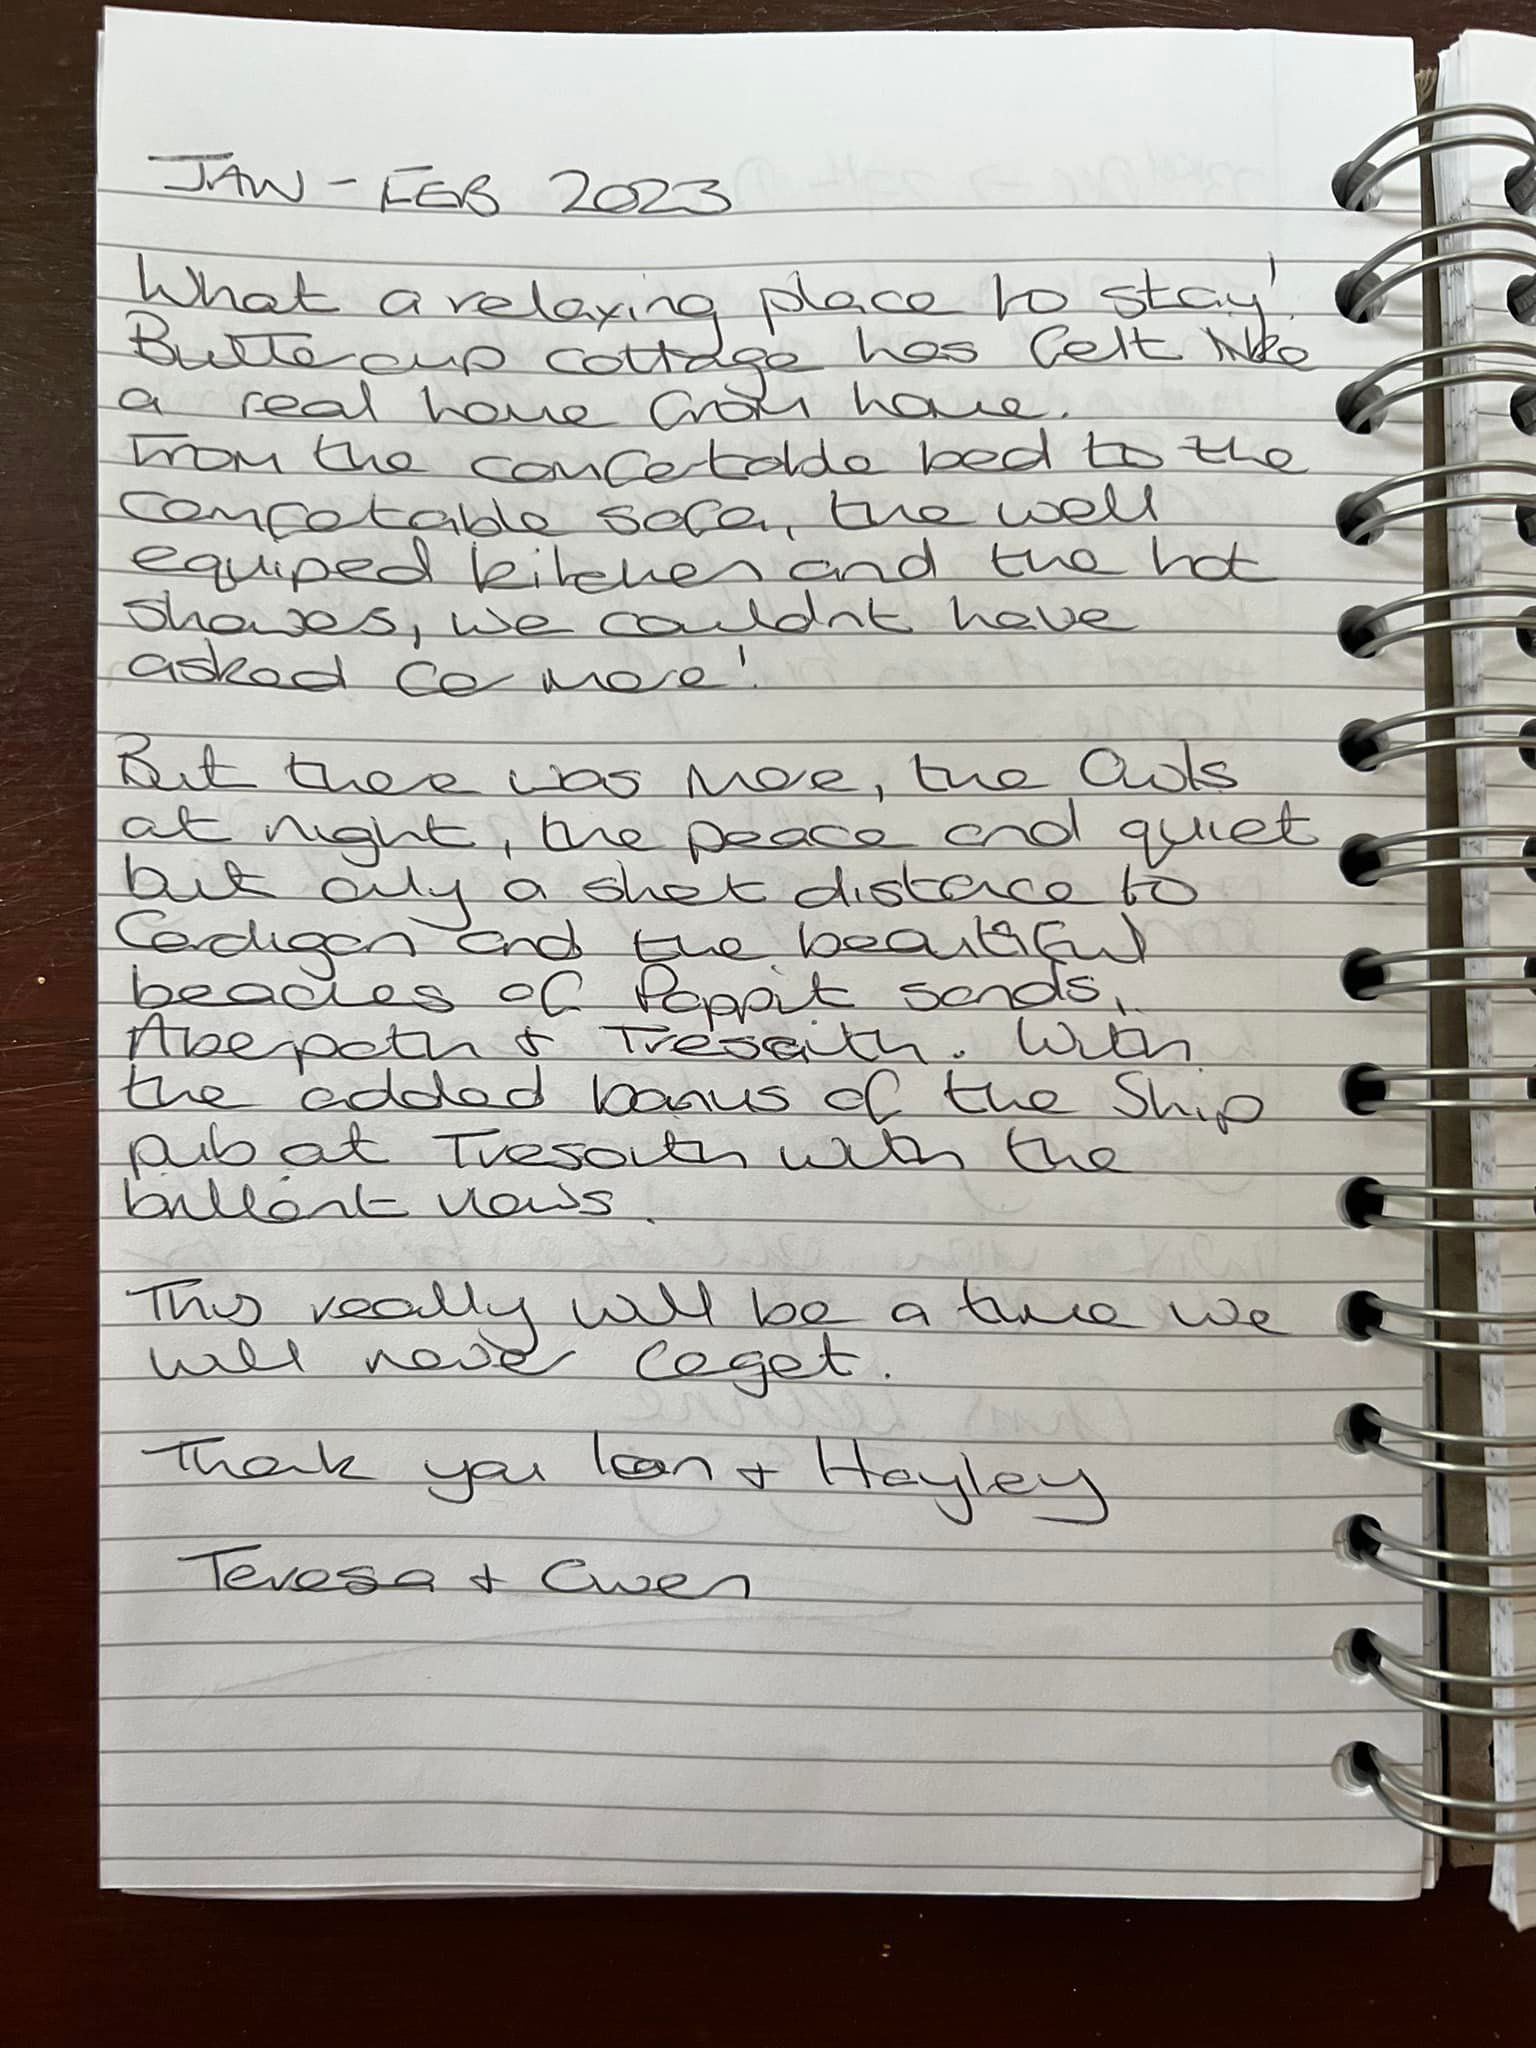 JAN - FEB 2023
What a relaxing place to stay!
Buttercup cottage has felt like
a real home from home.
From the comfortable bed to the
comfortable sofa, the well
equiped kitchen and the hot
showers, we couldn't have
asked for more!
But there was more, the Owls
at night, the peace and quiet
but only a short distance to
Cardigan and the beautiful
beaches of Poppit sands,
Aberporth & Tresaith. With
the added bonus of the Ship
pub at Tresaith with the
brillant views.
This really will be a time we
will never forget.
Thank you Ioan + Hayley
Teresa + Owen